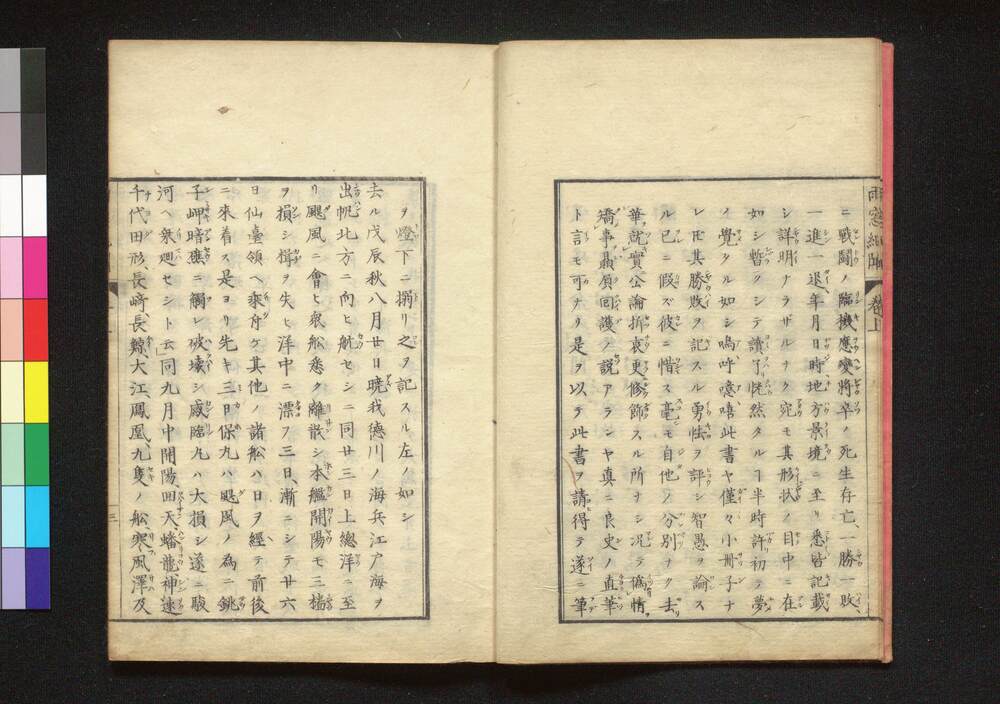 雨窓紀聞 卷上
ニ戰鬪ノ臨機應變將卒ノ死生存亡、一勝一敗
一進一退年月日時地方景境ニ至リ悉皆記載
シ詳明ナラザルナク宛モ其形状ノ目中ニ在
如シ暫クシテ讀了恍然タルヿ半時許初テ夢
ノ覺タル如シ嗚呼噫嘻此書ヤ僅々小冊子ナ
レ𪜈其勝敗ヲ記スル勇怯ヲ評シ智愚ヲ論ス
ル已ニ假ズ彼ニ惜ス毫モ自他ノ分別ナク去
華就實公論折衷更修飾スル所ナシ况テ僞情
矯事贔屓回護ノ説アランヤ真ニ良史ノ直筆
ト言モ可ナリ是ヲ以テ此書ヲ請得テ遂ニ筆
ヲ燈下ニ摒リ之ヲ記スル左ノ如シ
去ル戊辰秋八月廿日曉我德川ノ海兵江戸海ヲ
出帆北方ニ向ヒ航セシニ同廿三日上總洋ニ至
リ颶風ニ會ヒ衆舩悉ク離散シ本艦開陽モ三檣
ヲ損シ楫ヲ失ヒ洋中ニ漂フ三日、漸ニシテ廿六
日仙臺領ヘ乘舟ケ其他ノ諸舩ハ日ヲ經テ前後
ニ來着ス是ヨリ先キ三日保九ハ颶風ノ為ニ銚
子岬暗礁ニ觸レ破壊シ咸臨九ハ大損シ遂ニ駿
河ヘ乘廻セシト云」同九月中開陽、回天、蟠龍、神速
千代田形、長﨑、長鯨、大江、鳳凰、九隻ノ舩、寒風澤及
三